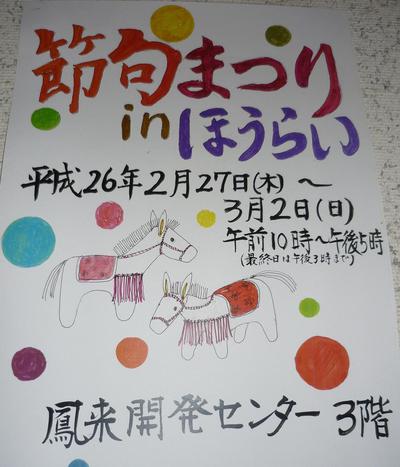 節句まつり
inほうらい
平成26年2月27日(木)～
3月2日(日)
午前10時～午後5時
(最終日は午後3時まで)
鳳来開発センター 3階